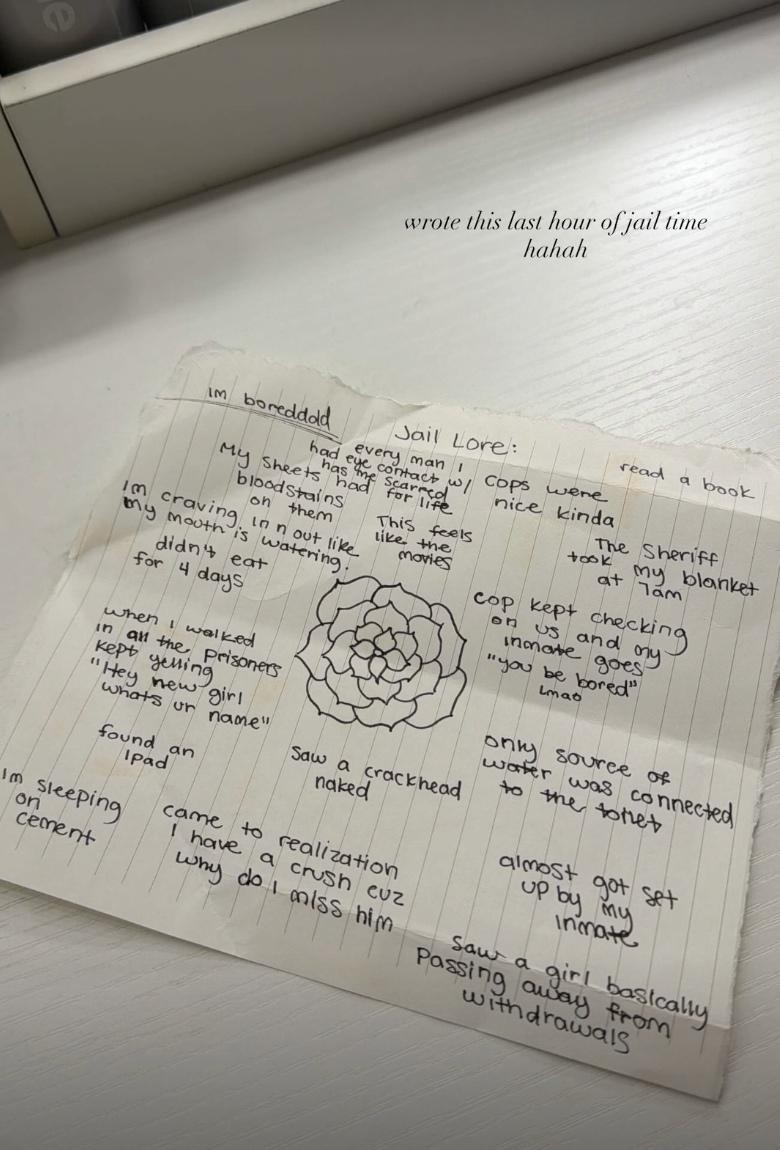 wrote this last hour of jail time
hahah
im boreddddd
Jail Lore:
every man I
had eye contact w/
has me scarred
for life
My sheets had
bloodstains
on them
Cops were
nice kinda
read a book
im craving in n out like
my mouth is watering!
This feels
like the
movies
The Sheriff
took my blanket
at 7am
didn't eat
for 4 days
cop kept checking
on us and my
inmate goes
"you be bored"
Lmao
when I walked
in all the prisoners
kept yelling
"Hey new girl
whats ur name"
found an
ipad
Saw a crackhead
naked
only source of
water was connected
to the toilet
Im sleeping
on
cement
came to realization
I have a crush cuz
why do I miss him
almost got set
up by my
inmate
Saw a girl basically
Passing away from
withdrawals